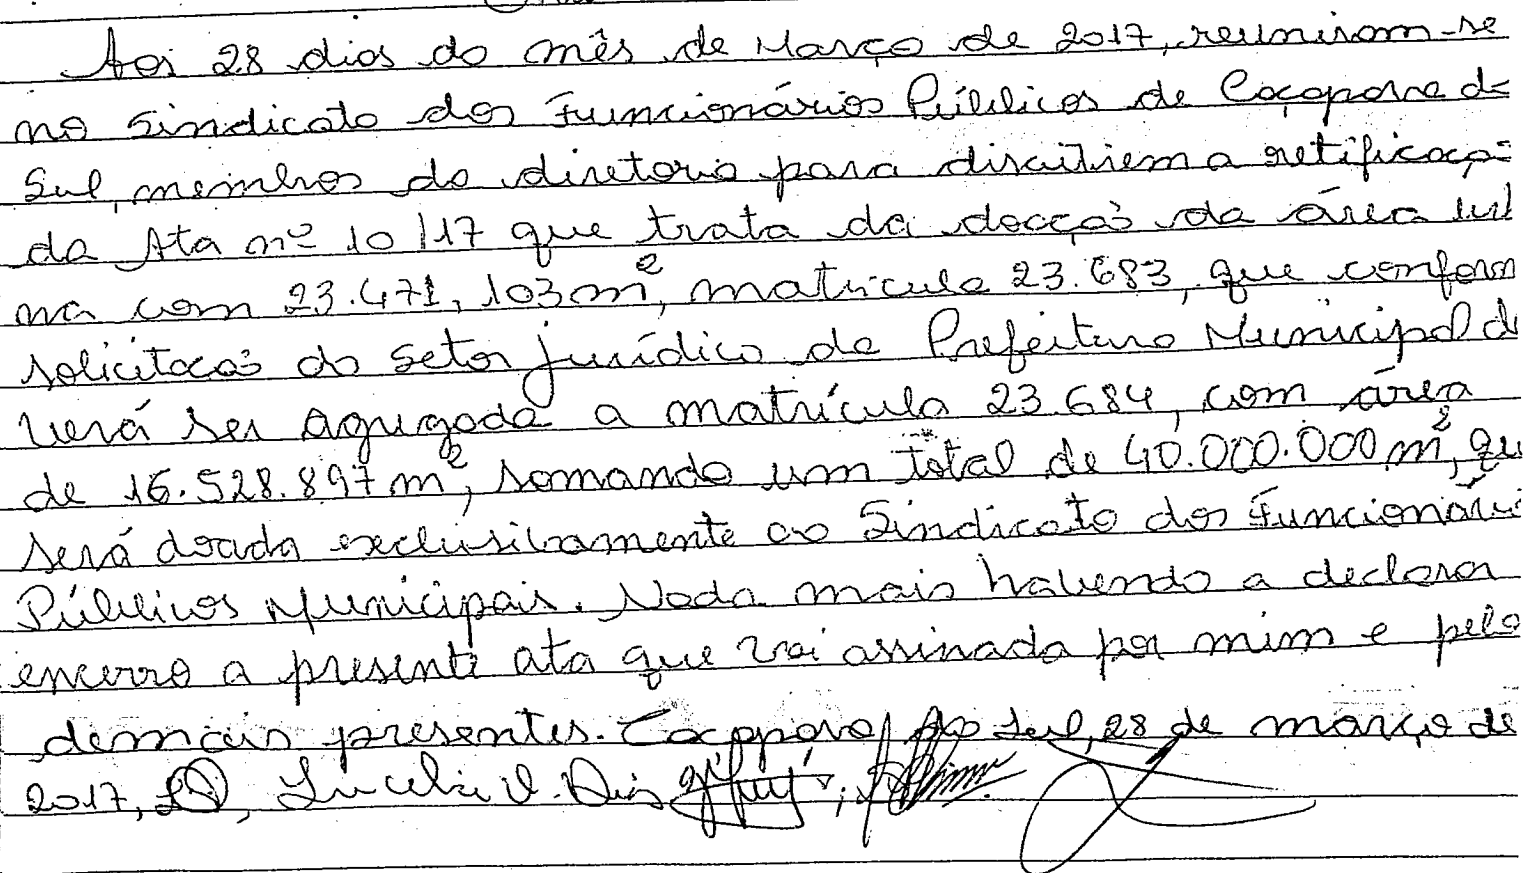 Aos 28 dias do mês de Março de 2017, reuniram-se
no Sindicato dos Funcionários Públicos de Caçapava do
Sul, membros da diretoria para discutirem a retificação
da Ata nº 10/17 que trata da doação da área
na com 23.471,103m², matricula 23.683, que conform
solicitação do setor jurídico da Prefeitura Municipal de
verá ser agregada a matrícula 23.684, com área
de 16.528.897m², somando um total de 40.000.000m², que
será doada exclusivamente ao Sindicato dos Funcionários
Públicos Municipais. Nada mais havendo a declarar
encerro a presente ata que vai assinada por mim e pelo
demais presentes. Caçapava do Sul, 28 de março de
2017,